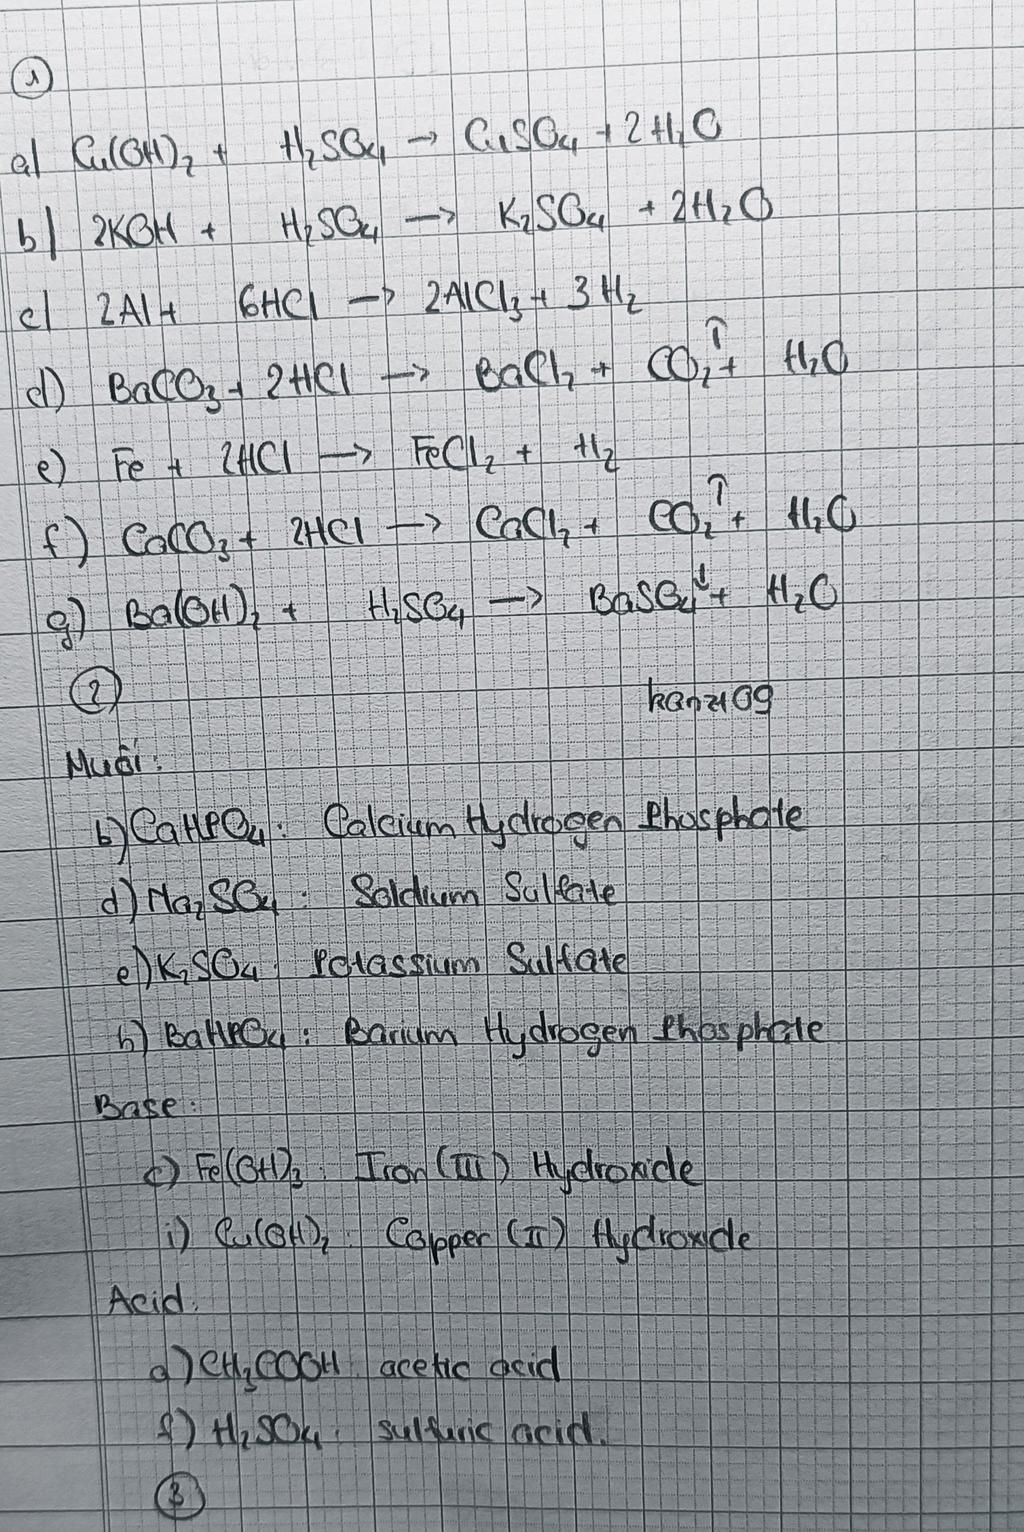 ①
a) Cu(OH)₂ + H₂SO₄ → CuSO₄ + 2H₂O
b) 2KOH + H₂SO₄ → K₂SO₄ + 2H₂O
c) 2Al + 6HCl → 2AlCl₃ + 3H₂
d) BaCO₃ + 2HCl → BaCl₂ + CO₂↑ + H₂O
e) Fe + 2HCl → FeCl₂ + H₂
f) CaCO₃ + 2HCl → CaCl₂ + CO₂↑ + H₂O
g) Ba(OH)₂ + H₂SO₄ → BaSO₄↓ + H₂O
②
kanz109
Muối:
b) CaHPO₄: Calcium Hydrogen Phosphate
d) Na₂SO₄: Soldium Sulfate
e) K₂SO₄: Potassium Sulfate
h) BaHPO₄: Barium Hydrogen Phosphate
Base:
c) Fe(OH)₃: Iron (III) Hydroxide
i) Cu(OH)₂: Copper (II) Hydroxide
Acid:
a) CH₃COOH: acetic acid
f) H₂SO₄: sulfuric acid.
③